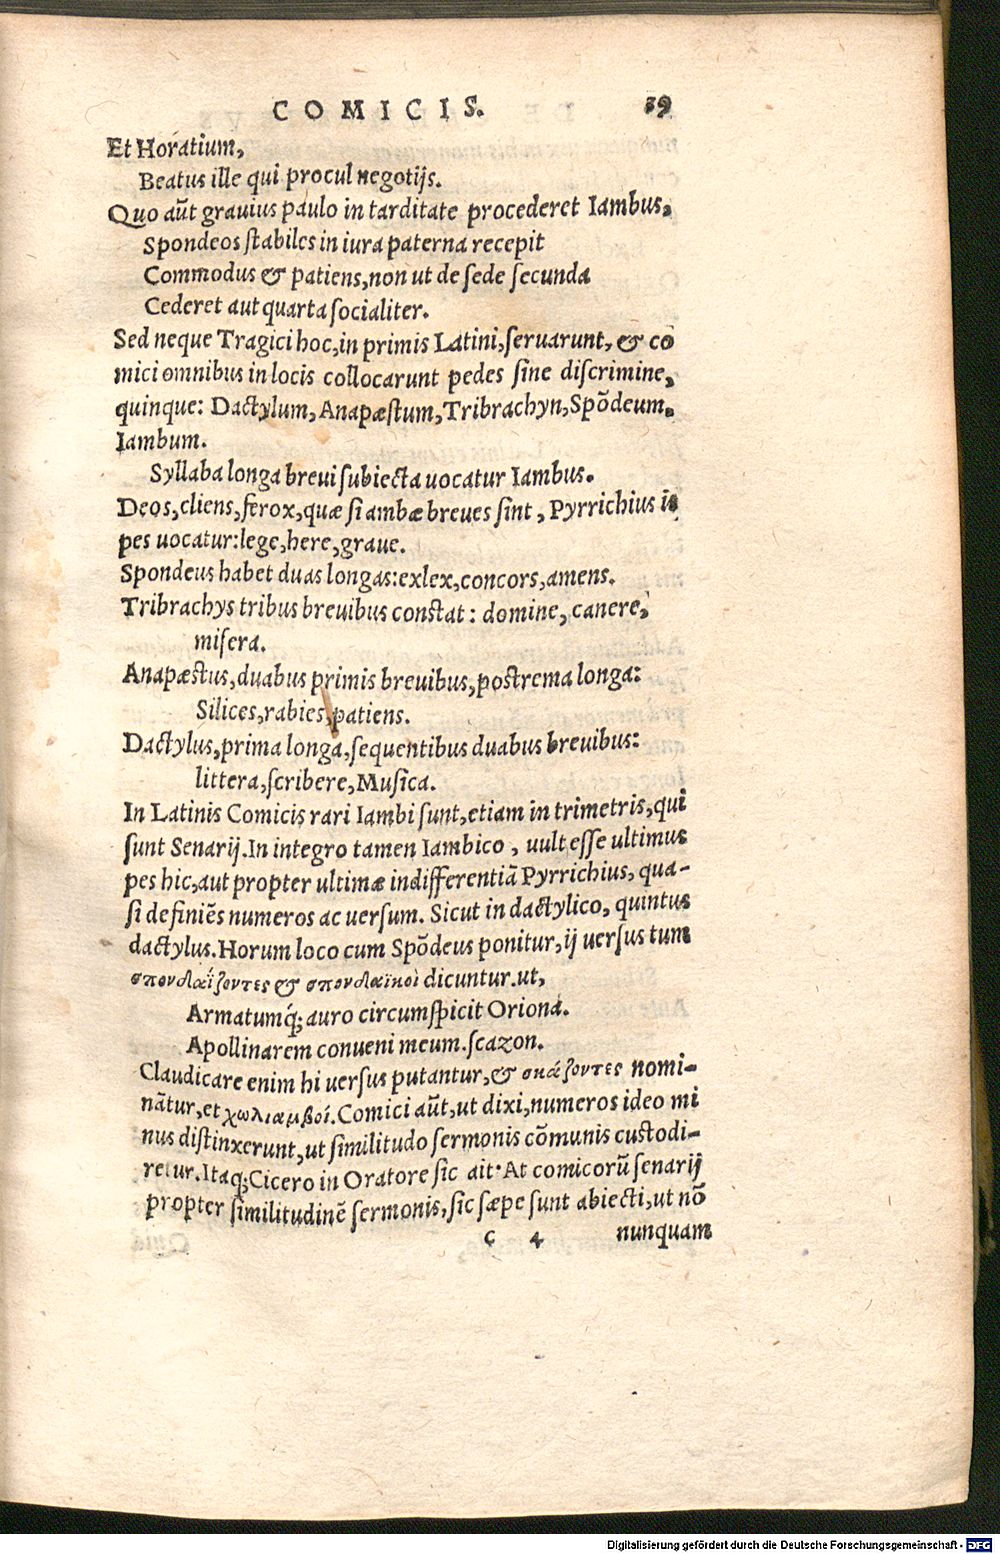 COMICIS. 39
Et Horatium,
Beatus ille qui procul negotijs.
Quo aūt grauius paulo in tarditate procederet Iambus,
Spondeos ſtabiles in iura paterna recepit
Commodus & patiens, non ut de ſede ſecunda
Cederet aut quarta ſocialiter.
Sed neque Tragici hoc, in primis Latini, ſeruarunt, & co
mici omnibus in locis collocarunt pedes ſine diſcrimine,
quinque: Dactylum, Anapæſtum, Tribrachyn, Spōdeum,
Iambum.
Syllaba longa breui ſubiecta uocatur Iambus.
Deos, cliens, ferox, quæ ſi ambæ breues ſint, Pyrrichius is
pes uocatur: lege, here, graue.
Spondeus habet duas longas: exlex, concors, amens.
Tribrachys tribus breuibus conſtat: domine, canere,
miſera.
Anapæſtus, duabus primis breuibus, poſtrema longa:
Silices, rabies, patiens.
Dactylus, prima longa, ſequentibus duabus breuibus:
littera, ſcribere, Muſica.
In Latinis Comicis rari Iambi ſunt, etiam in trimetris, qui
ſunt Senarij. In integro tamen Iambico, uult eſſe ultimus
pes hic, aut propter ultimæ indifferentiā Pyrrichius, qua-
ſi definiēs numeros ac uerſum. Sicut in dactylico, quintus
dactylus. Horum loco cum Spōdeus ponitur, ij uerſus tum
σπονδαΐζοντες & σπονδαϊκοὶ dicuntur. ut,
Armatumq́; auro circumſpicit Oriona.
Apollinarem conueni meum. ſcazon.
Claudicare enim hi uerſus putantur, & σκάζοντες nomi-
nātur, et χωλιαμβοί. Comici aūt, ut dixi, numeros ideo mi
nus diſtinxerunt, ut ſimilitudo ſermonis cōmunis cuſtodi-
retur. Itaq; Cicero in Oratore ſic ait. At comicorū ſenarij
propter ſimilitudinē ſermonis, ſic ſæpe ſunt abiecti, ut nō
c 4 nunquam
Digitalisierung gefördert durch die Deutsche Forschungsgemeinschaft - DFG